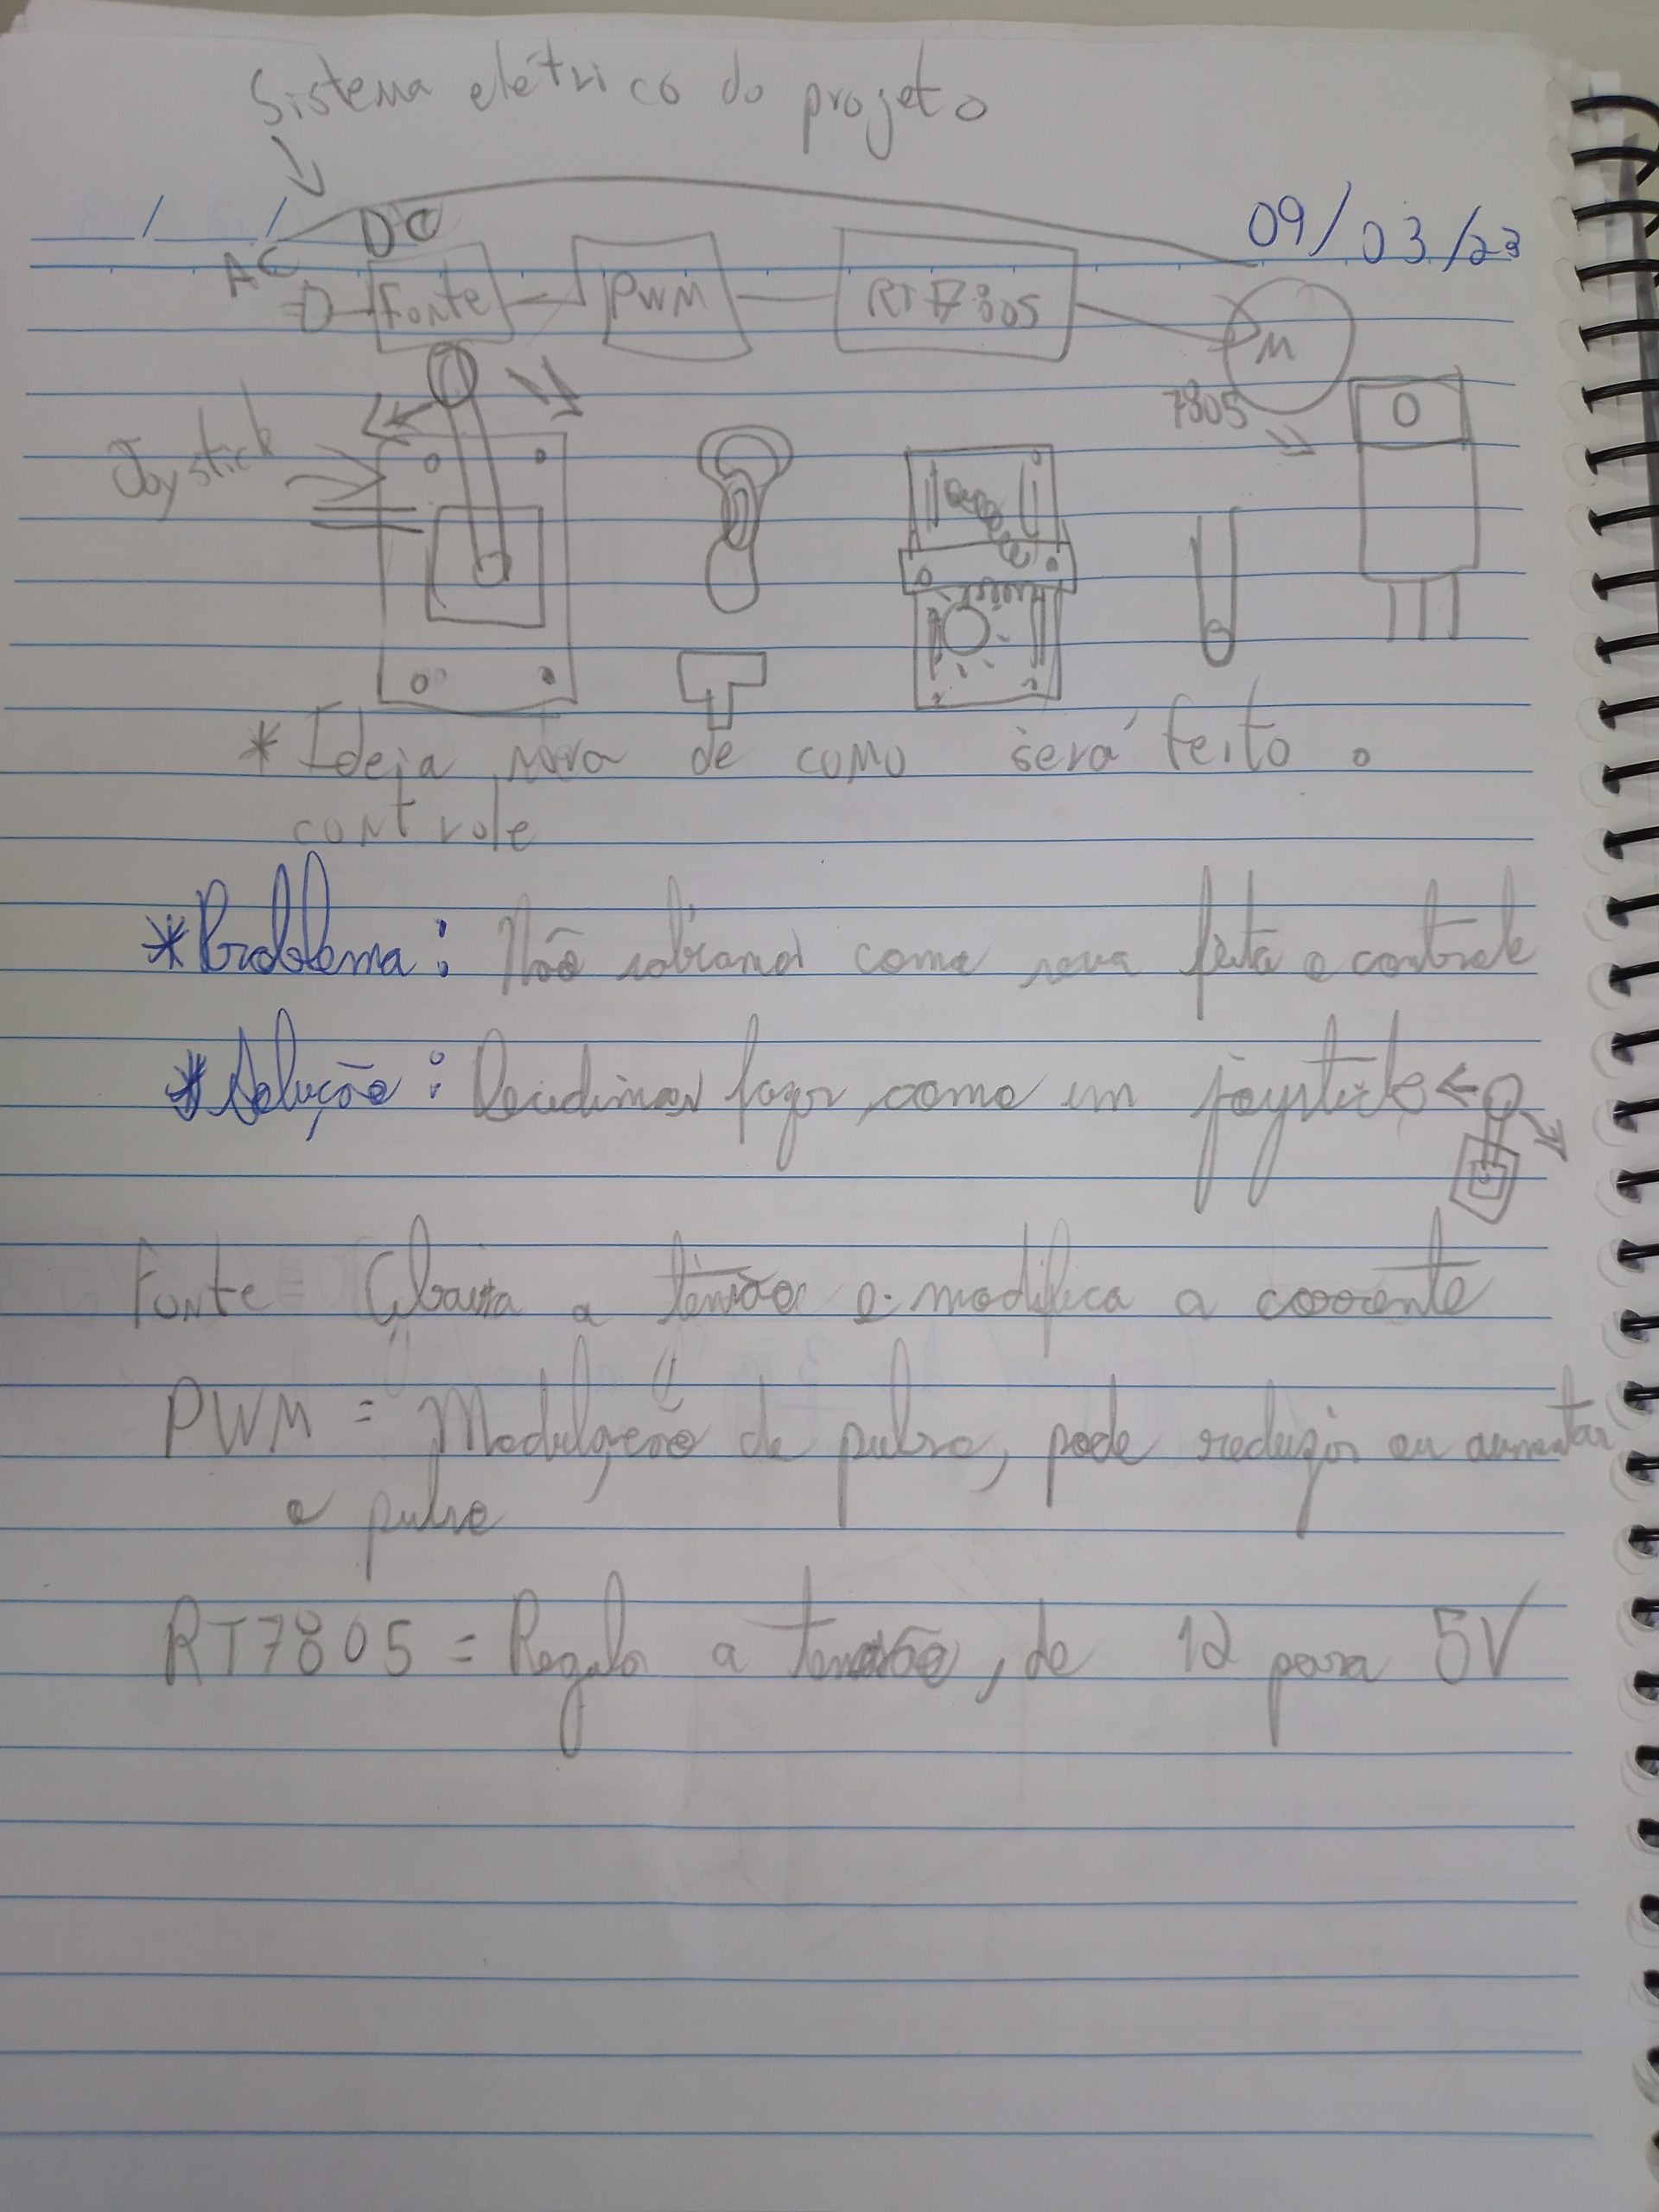 Sistema elétrico do projeto
09/03/23
AC DC
Fonte PWM RT7805 M
7805
Joystick
* Ideia nova de como será feito o
controle
*Problema: Não sabíamos como seria feito o controle
*Solução: Decidimos fazer como um joystick
Fonte = Abaixa a tensão e modifica a corrente
PWM = Modulação de pulso, pode reduzir ou aumentar
o pulso
RT7805 = Regula a tensão, de 12 para 5V